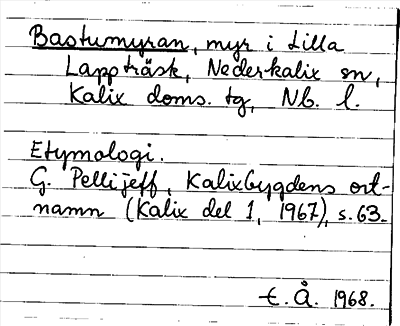 Bastumyran, myr i Lilla
Lappträsk, Nederkalix sn,
Kalix doms. tg, Nb. l.
Etymologi.
G. Pellijeff, Kalixbygdens ort-
namn (Kalix del 1, 1967), s. 63.
E. Å. 1968.